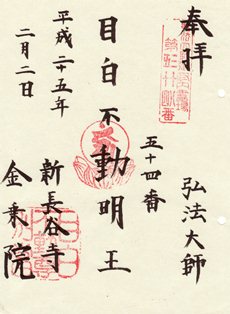 奉拝
弘法大師
五十四番
目白不動明王
新長谷寺
金乗院
平成二十五年
二月二日